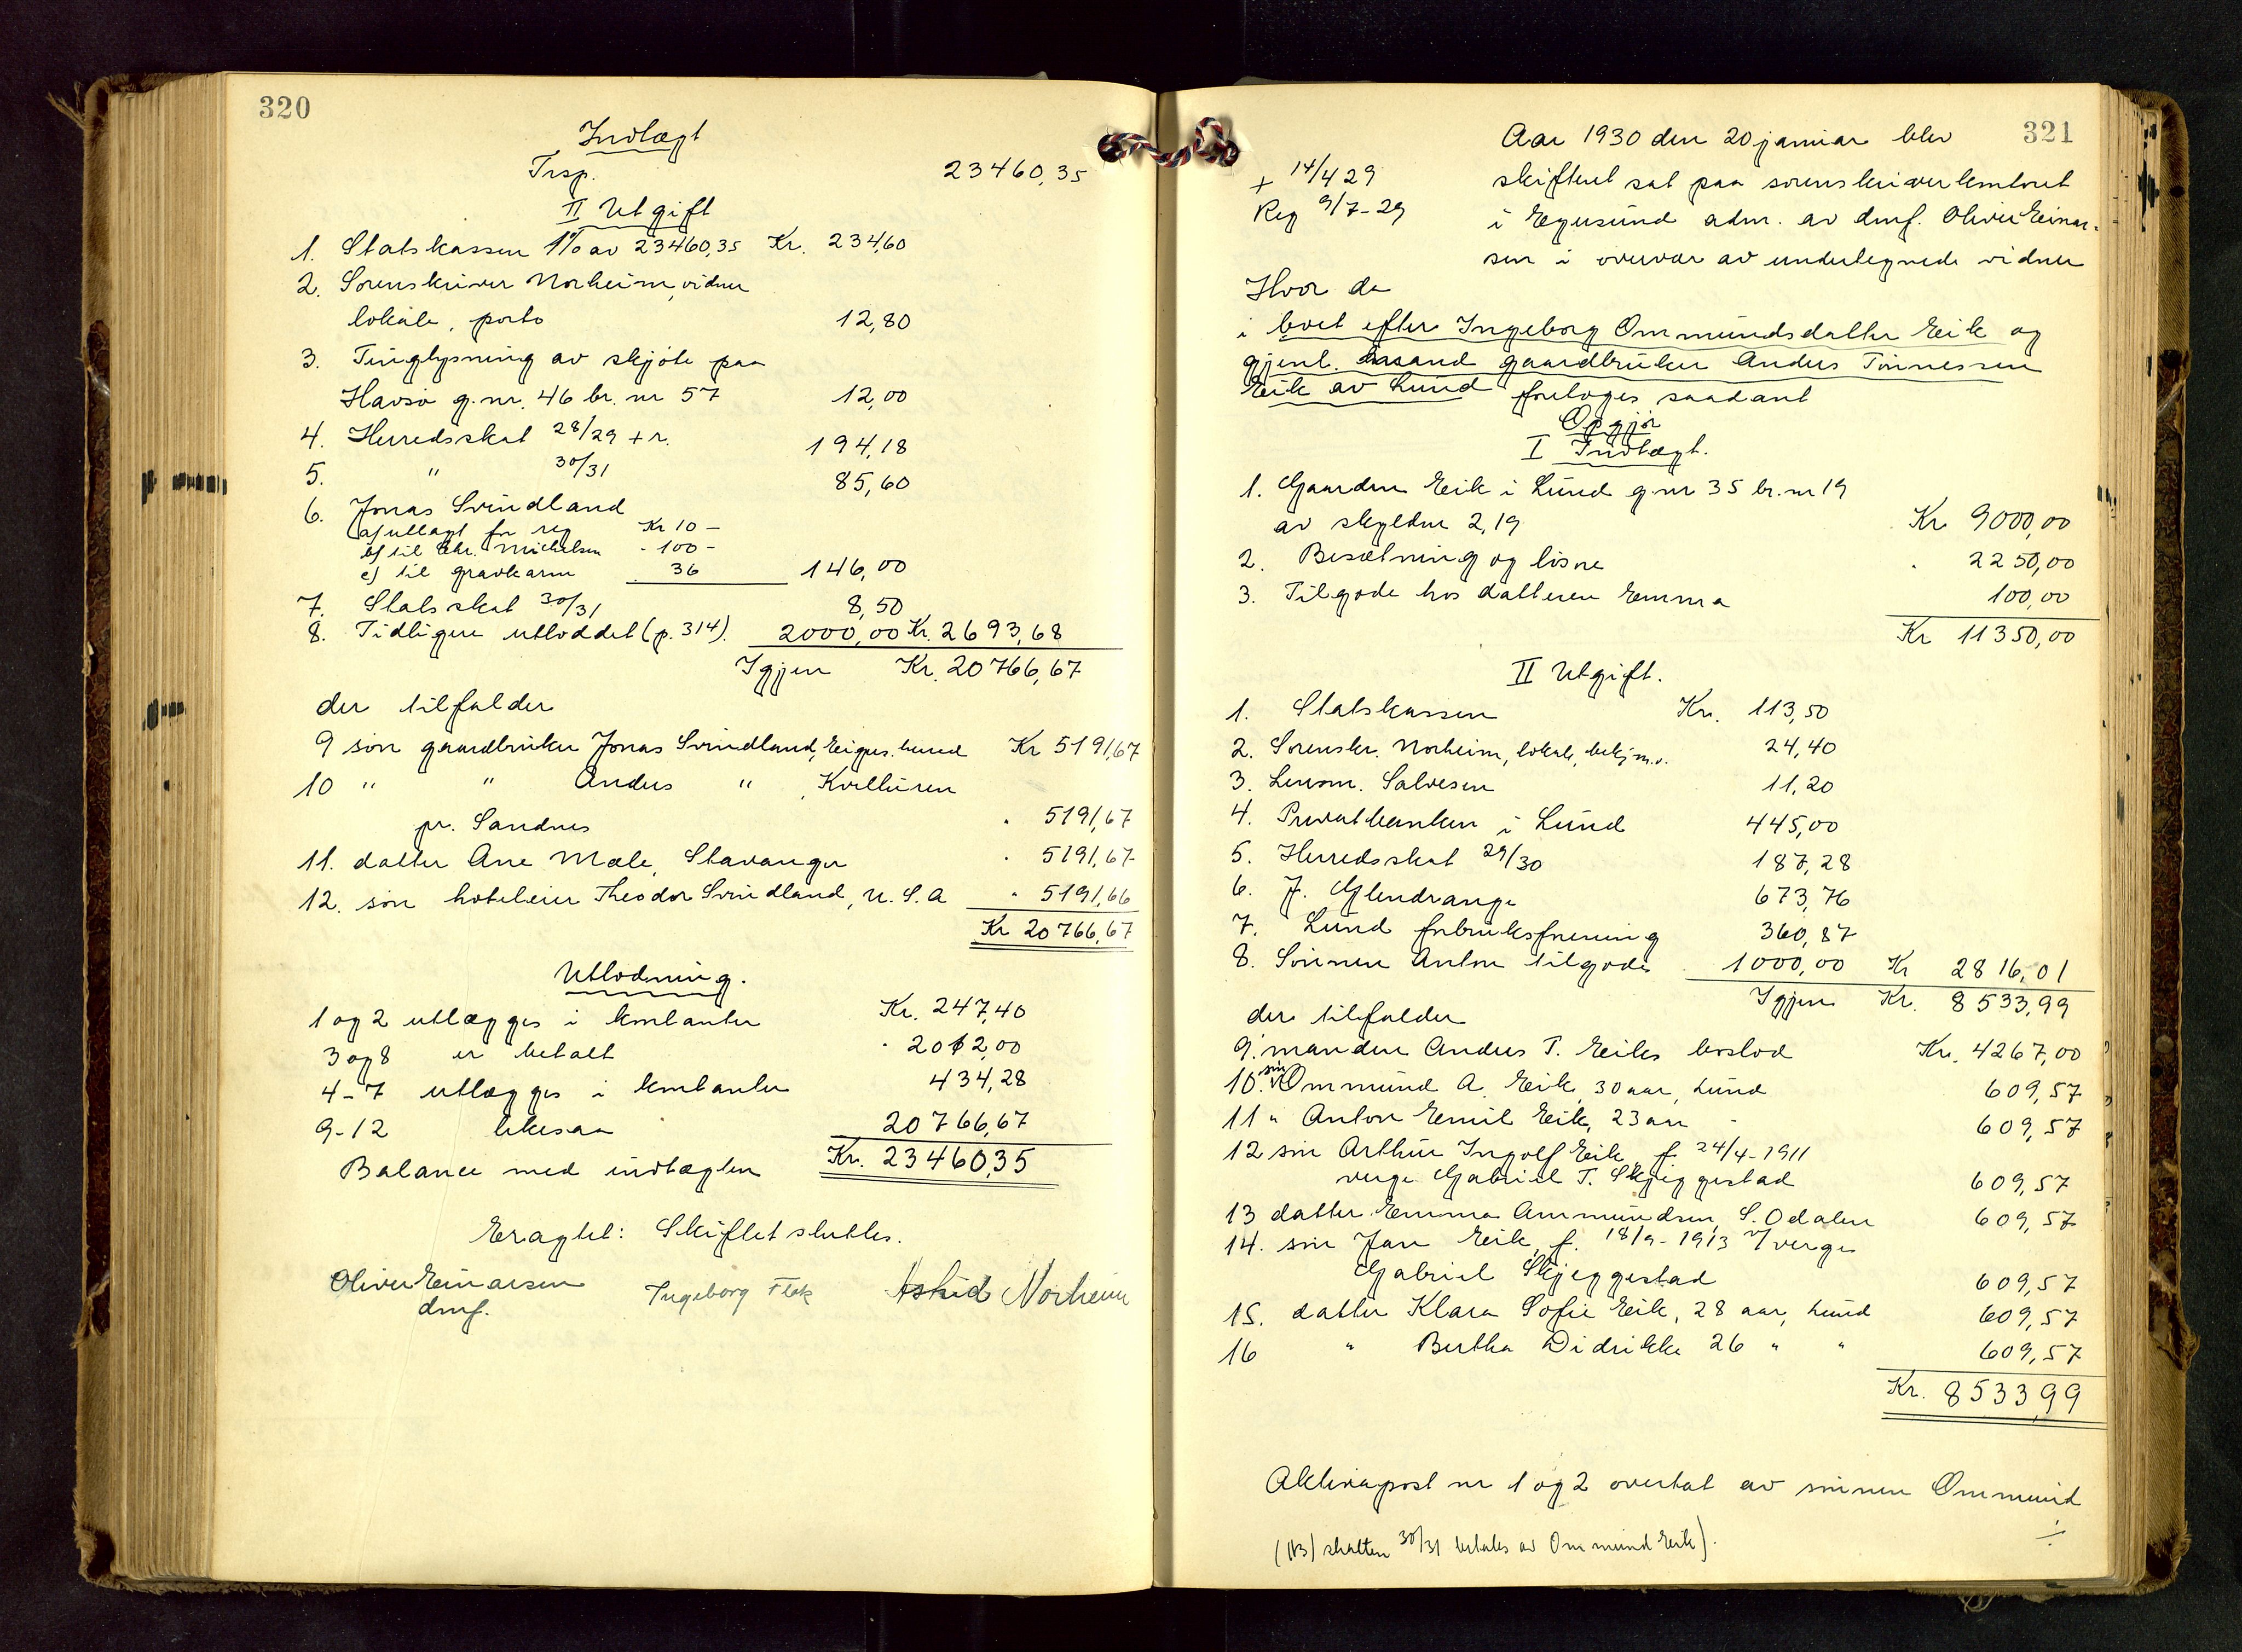 320
Indtægt
Trsp. 23460,35
II Utgift
1. Statskassen 1% av 23460,35 Kr. 234,60
2. Sorenskriver Norheim, vidner
lokale, porto 12,80
3. Tinglysning av skjøte paa
Havsø g.nr. 46 br. nr 57 12,00
4. Herredsskat 28/29 + r. 194,18
5. " 30/31 85,60
6. Jonas Svindland
a) utlagt for reg Kr 10 –
b) til Chr. Michelsen " 100 –
c) til gravkarm 36 146,00
7. Statsskat 30/31 8,50
8. Tidligere utloddet (p. 314). 2000,00 Kr. 2693,68
Igjen Kr. 20766,67
der tilfalder
9 søn gaardbruker Jonas Svindland, Eigers. lund Kr 5191,67
10 " " Anders " , Kvelluren
pr. Sandnes " 5191,67
11. datter Ane Mæle, Stavanger " 5191,67
12. søn hoteleier Theodor Svindland, U.S.A " 5191,66
Kr 20766,67
Utlodning.
1 og 2 utlægges i kontanter Kr. 247,40
3 og 8 er betalt " 2012,00
4-7 utlægges i kontanter 434,28
9-12 likesaa 20766,67
Balance med indtægten Kr. 23460,35
Eragtet: Skiftet sluttes.
Oliver Einarsen Ingeborg Fisk Astrid Norheim
dmf.
321
Aar 1930 den 20 januar blev
+ 14/4 29 skifteret sat paa sorenskriverkontoret
Reg 9/7-29 i Egersund adm. av dmf. Oliver Einar-
sen i overvær av undertegnede vidner
Hvor da
i boet efter Ingeborg Ommundsdatter Eik og
gjenl. mand gaardbruker Anders Tønnessen
Eik av Lund foretoges saadant
Opgjør
I Indtægt.
1. Gaarden Eik i Lund g.nr 35 br.nr 19
av skyldm 2,19 Kr 9000,00
2. Besætning og løsøre " 2250,00
3. Tilgode hos datteren Emma 100,00
Kr 11350,00
II Utgift.
1. Statskassen Kr. 113,50
2. Sorenskr. Norheim, lokale, bekj m.v. 24,40
3. Lensm. Salvesen 11,20
4. Privatbanken i Lund 445,00
5. Herredsskat 29/30 187,28
6. J. Glendrange 673,76
7. Lund forbruksforening 360,87
8. Sønnen Anton tilgode 1000,00 Kr 2816,01
Igjen Kr. 8533,99
der tilfalder
9. manden Anders T. Eiks boslod Kr. 4267,00
10. søn Ommund A. Eik, 30 aar, Lund 609,57
11 " Anton Emil Eik, 23 aar " 609,57
12 søn Arthur Ingolf Eik f. 24/4-1911
verge Gabriel T. Skjeggestad 609,57
13 datter Emma Ammundsen, S. Odalen 609,57
14. søn Jan Eik, f. 18/9-1913 v/verge
Gabriel Skjeggestad 609,57
15. datter Klara Sofie Eik, 28 aar, Lund 609,57
16 " Bertha Didrikke 26 " " 609,57
Kr. 8533,99
Aktivapost nr 1 og 2 overtat av sønnen Ommund
(NB) skatten 30/31 betales av Ommund Eik).